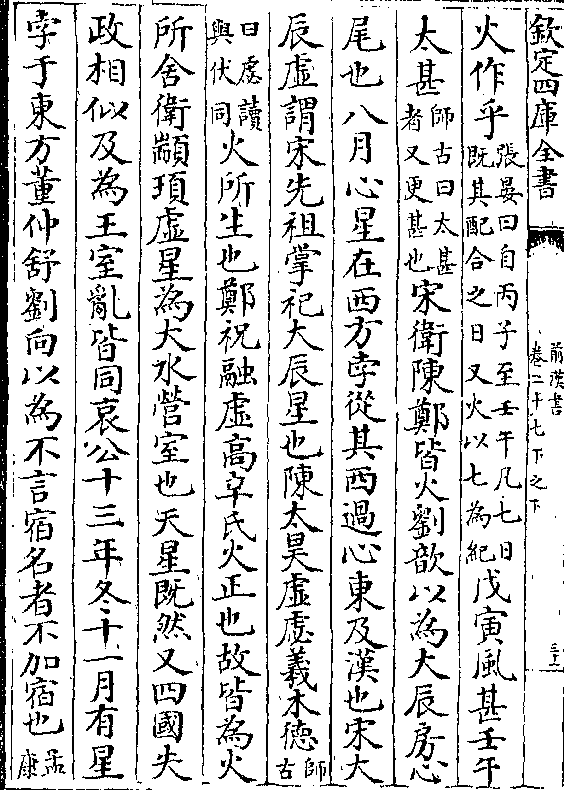 欽定四庫全書
前漢書
卷二十七下之下
火作乎張晏曰自丙子至壬午凡七日既其配合之日又火以七為紀戊寅風甚壬午
太甚師古曰太甚者又更甚也宋衛陳鄭皆火劉歆以為大辰房心
尾也八月心星在西方孛從其西過心東及漢也宋大
辰虛謂宋先祖掌祀大辰星也陳太昊虛虙羲木德師古
曰虙讀與伏同火所生也鄭祝融虛高辛氏火正也故皆為火
所舍衛顓頊虛星為大水營室也天星既然又四國失
政相似及為王室亂皆同哀公十三年冬十一月有星
孛于東方董仲舒劉向以為不言宿名者不加宿也孟康